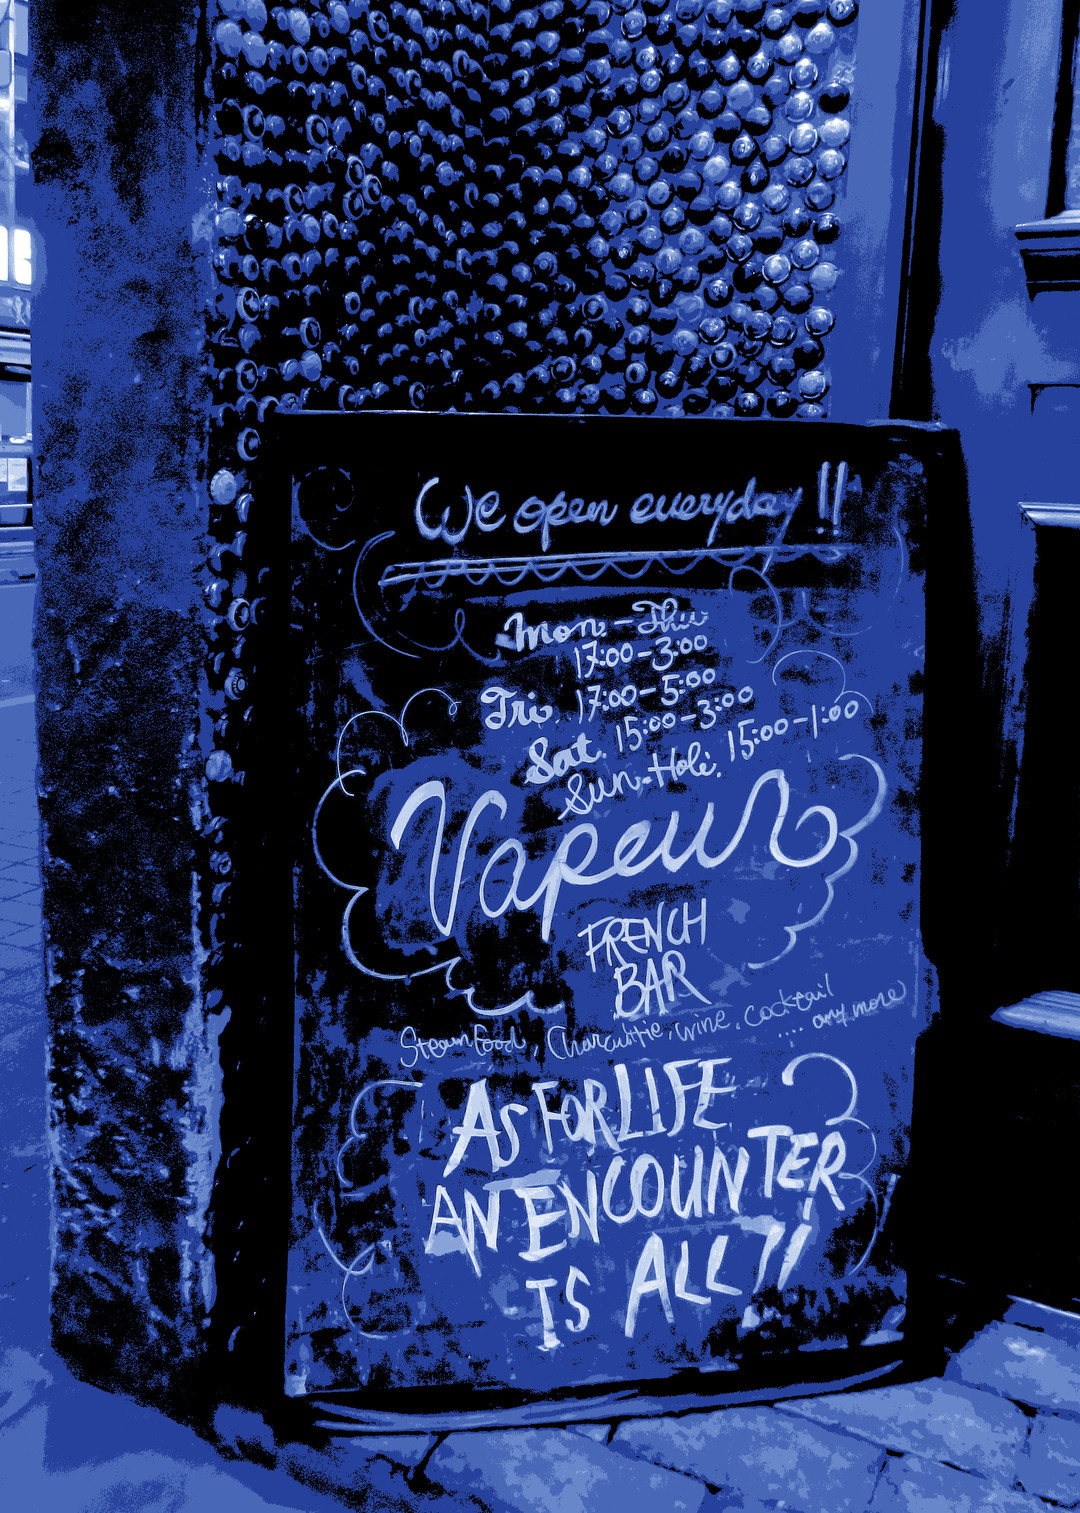 We open everyday !!
Mon. - Thu
17:00 - 3:00
Fri. 17:00 - 5:00
Sat. 15:00 - 3:00
Sun - Holi. 15:00 - 1:00
Vapeur
FRENCH
BAR
Steam food, Charcuttie, wine, cocktail
.... any more
AS FOR LIFE
AN ENCOUNTER
IS ALL !!